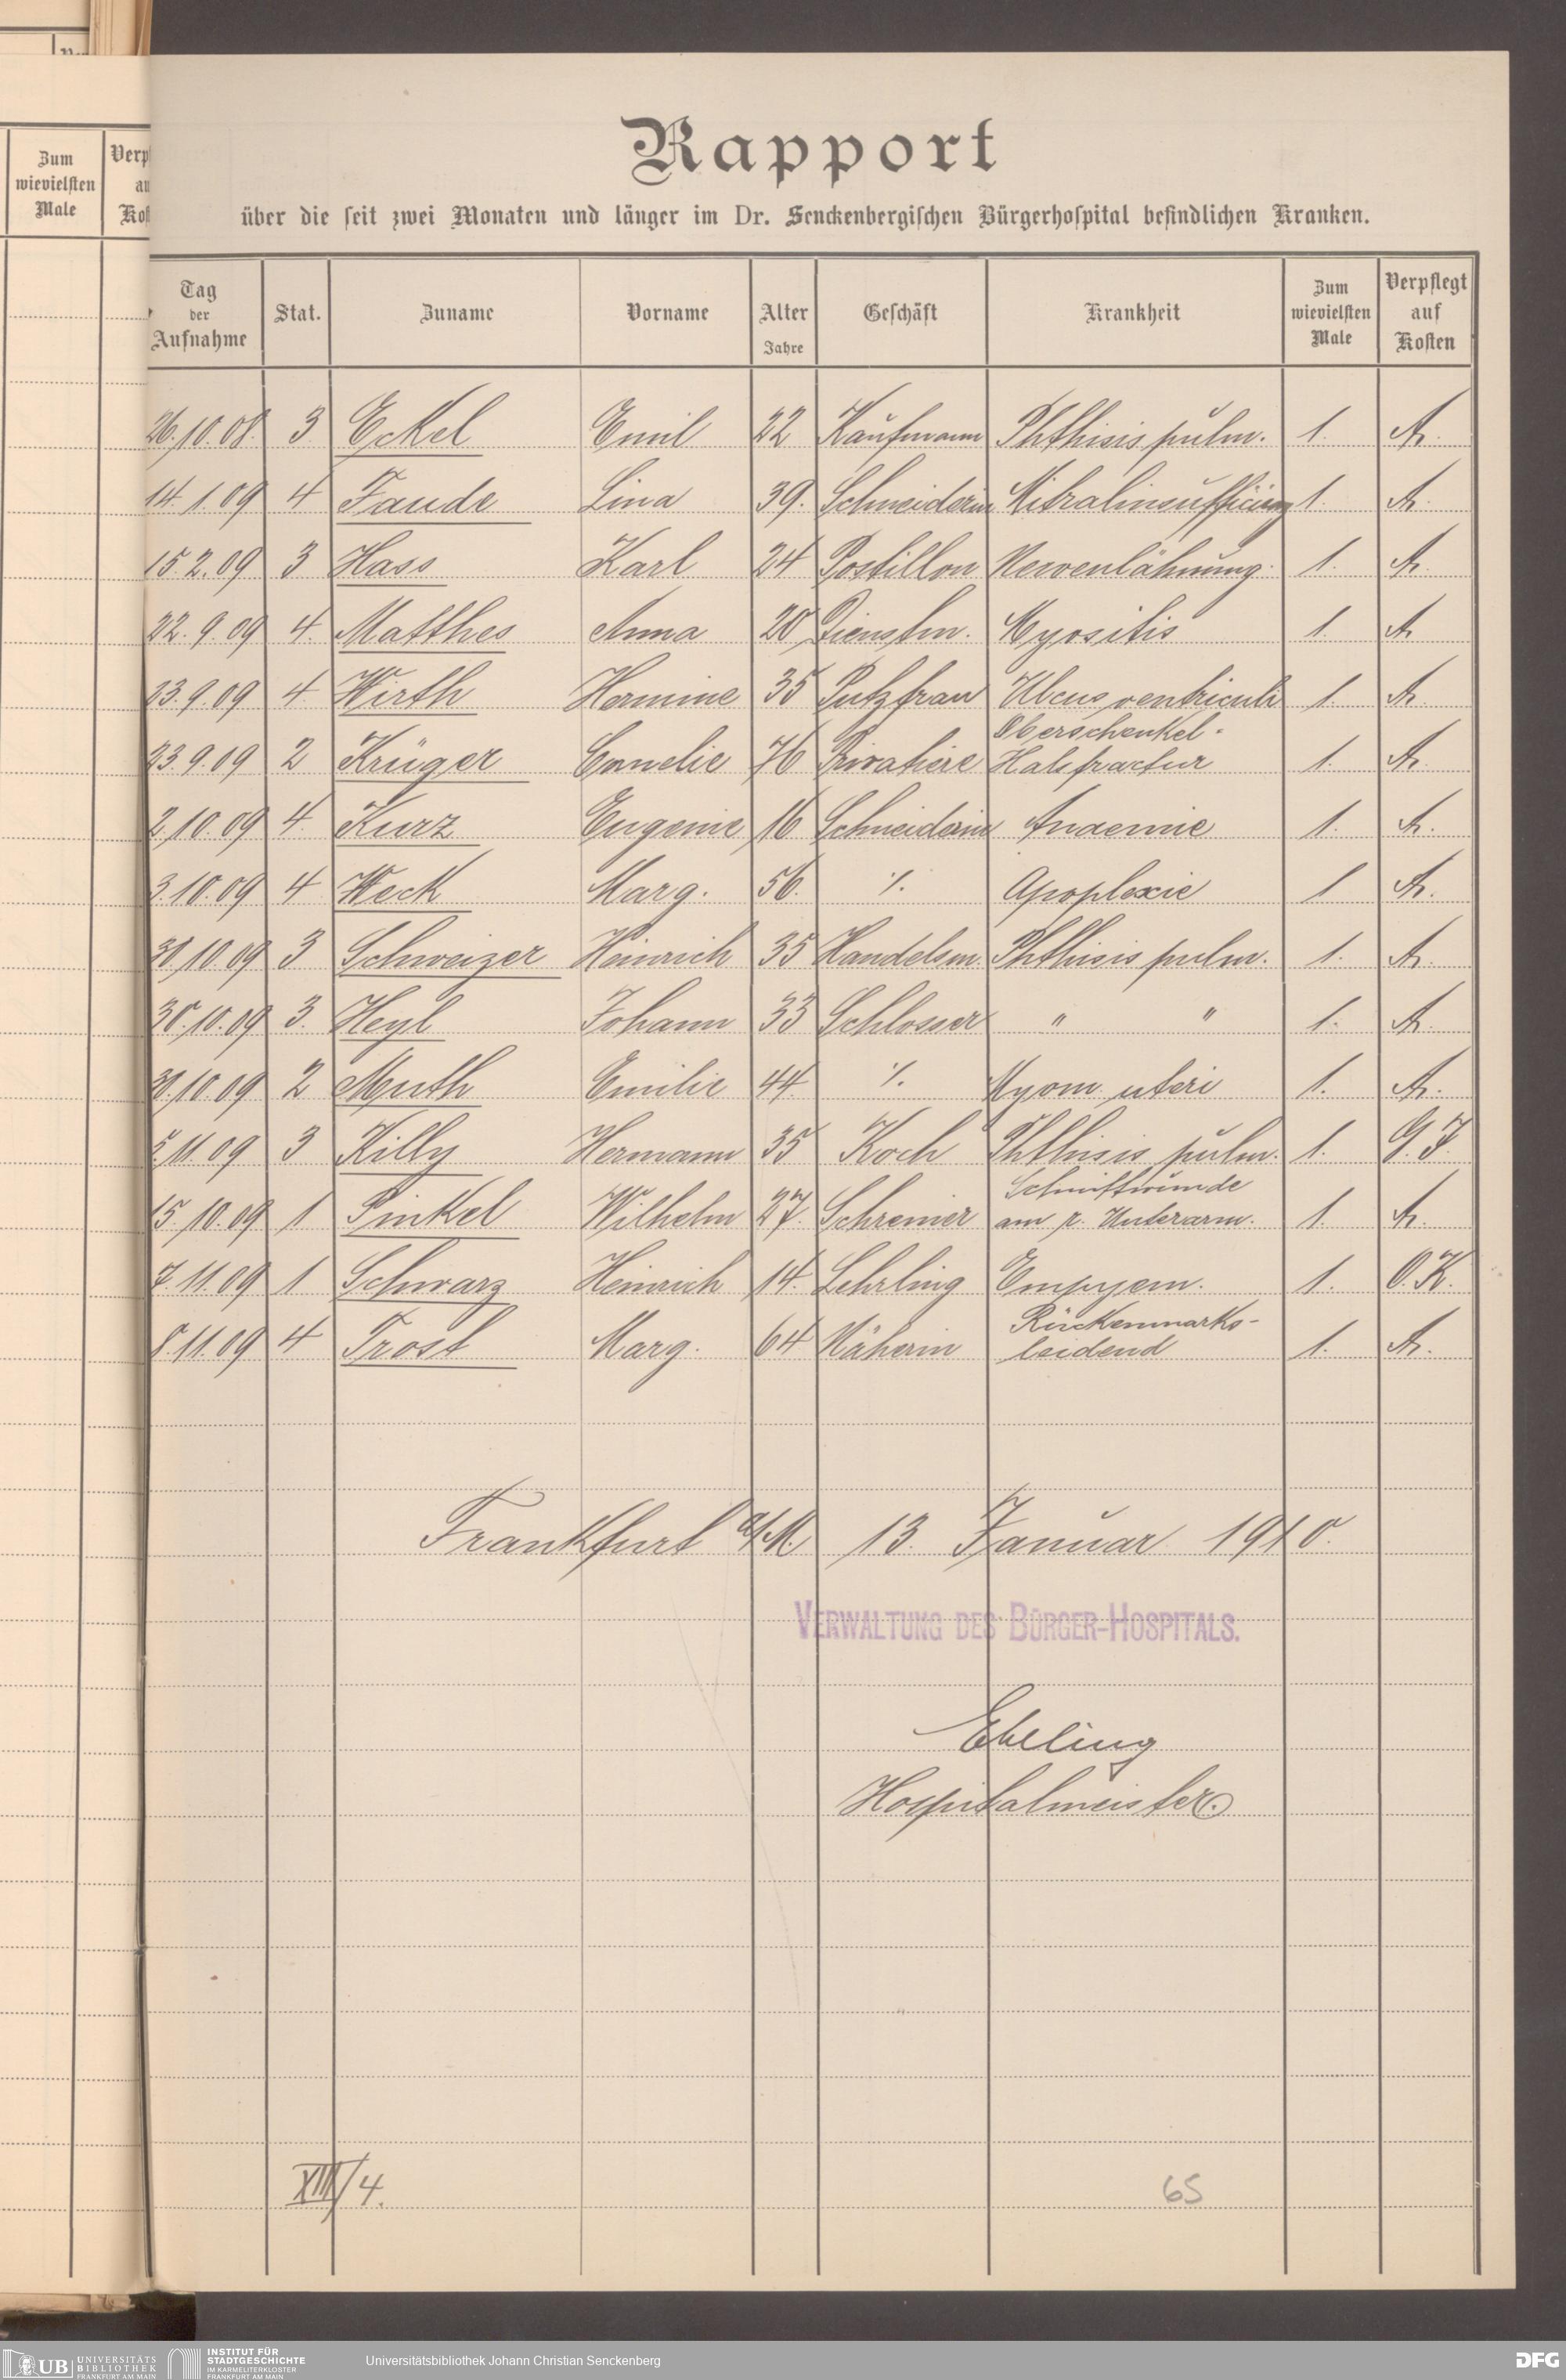 Zum
wievielsten
Male
Rapport
über die seit zwei Monaten und länger im Dr. Senckenbergischen Bürgerhospital befindlichen Kranken.
Tag der Aufnahme Stat. Zuname Vorname Alter Jahre Geschäft Krankheit Zum wievielsten Male Verpflegt auf Kosten
26.10.08. 3 Eckel Emil 22 Kaufmann Phthisis pulm. 1. A.
14.1.09 4 Faude Lina 39. Schneiderin 1. A.
15.2.09 3 Hass Karl 24 Postillon Nervenlähmung. 1. A.
22.9.09 4. Matthes Anna 20 Dienstm. Myositis 1. A.
23.9.09 4 Wirth Hermine 35 Putzfrau Ulcus ventriculi 1. A.
Oberschenkel-
23.9.09 2 Krüger Cornelie 76 Privatiere Halsfractur 1. A.
2.10.09 4. Kurz Eugenie 16 Schneiderin Anaemie 1. A.
3.10.09 4 Weck Marg. 56. ·/. Apoplexie 1 A.
30.10.09 3 Schweizer Heinrich 35 Handelsm. Phthisis pulm. 1. A.
30.10.09 3. Heyl Johann 33 Schlosser " " 1. A.
30.10.09 2 Muth Emilie 44. ·/. Myom uteri 1. A.
5.11.09 3 Killy Hermann 35 Koch Phthisis pulm. 1. G.F.
Schnittwunde
15.10.09 1 Pinkel Wilhelm 27. Schreiner am r. Unterarm. 1. A.
7.11.09 1 Schwarz Heinrich 14. Lehrling Empyem. 1. O.K.
Rückenmarks-
8.11.09 4 Trost Marg. 64 Näherin leidend 1. A.
Frankfurt a/M. 13. Januar 1910.
VERWALTUNG DES BÜRGER-HOSPITALS.
Ebeling
Hospitalmeister.
XIII/4. 65
UB UNIVERSITÄTS
BIBLIOTHEK
FRANKFURT AM MAIN
INSTITUT FÜR
STADTGESCHICHTE
IM KARMELITERKLOSTER
FRANKFURT AM MAIN
Universitätsbibliothek Johann Christian Senckenberg
DFG